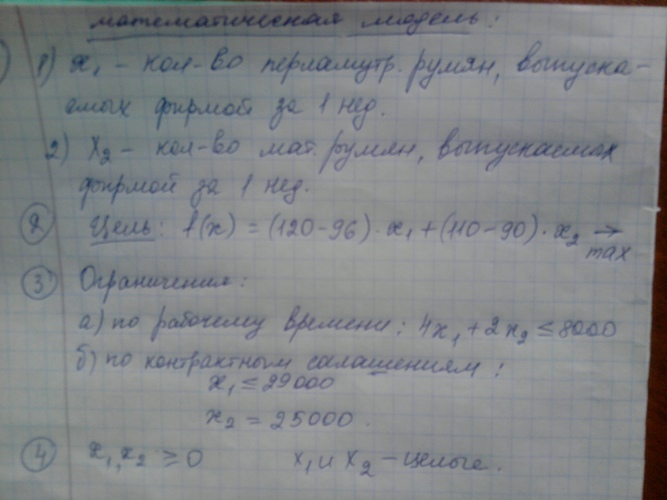 математическая модель:
1) x₁ - кол-во перламутр. румян, выпуска-
емых фирмой за 1 нед.
2) x₂ - кол-во мат. румян, выпускаемых
фирмой за 1 нед.
② Цель: f(x) = (120-96)·x₁+(110-90)·x₂ → max
③ Ограничения:
а) по рабочему времени: 4x₁+2x₂ ≤ 8000
б) по контрактным солашениям:
x₁ ≤ 29000
x₂ = 25000.
④ x₁, x₂ ≥ 0 x₁ и x₂ - целые.